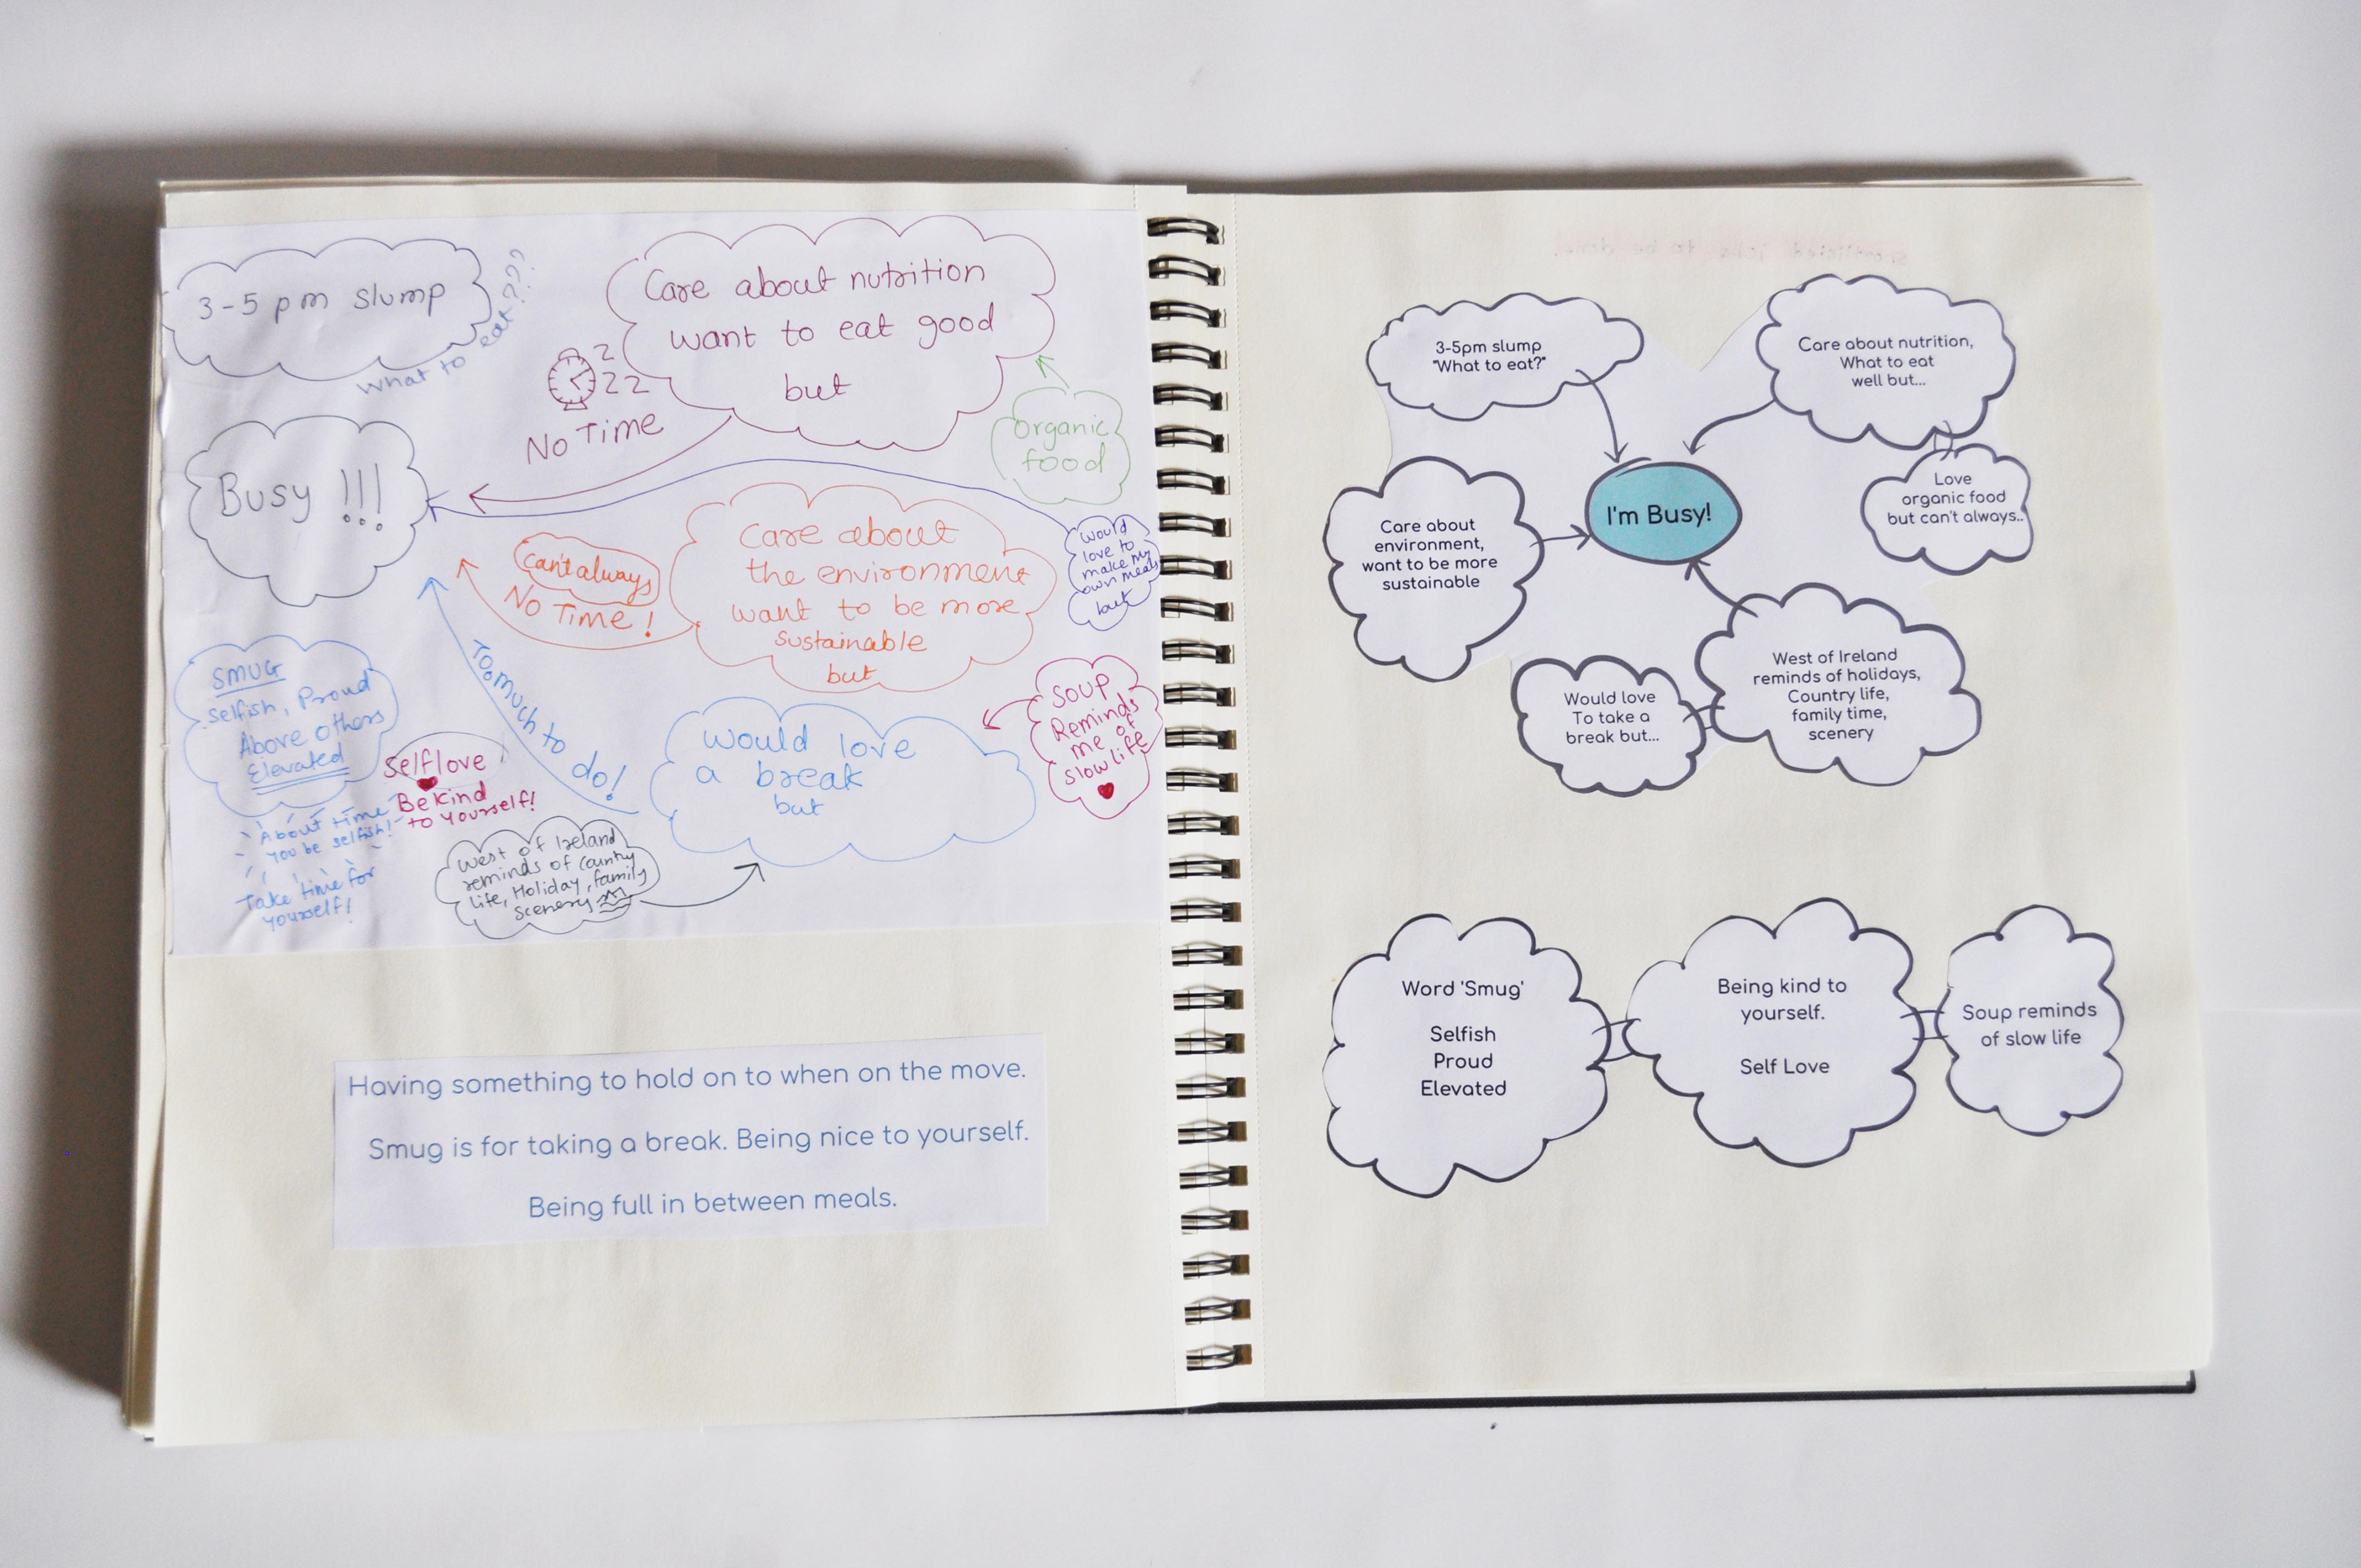 3-5 pm slump
What to eat???
Care about nutrition
want to eat good
but
No Time
organic
food
Busy !!!
Can't always
No Time !
Care about
the environment
want to be more
sustainable
but
Would
love to
make my
own meals
but
SMUG
Selfish, Proud
Above others
Elevated
About time
you be selfish!
Take time for
yourself!
Self love
Be kind
to yourself!
Too much to do!
Would love
a break
but
Soup
Reminds
me of
slow life
West of Ireland
reminds of country
life, Holiday, family
scenery
Having something to hold on to when on the move.
Smug is for taking a break. Being nice to yourself.
Being full in between meals.
3-5pm slump
"What to eat?"
Care about nutrition,
What to eat
well but...
Love
organic food
but can't always..
I'm Busy!
Care about
environment,
want to be more
sustainable
Would love
To take a
break but...
West of Ireland
reminds of holidays,
Country life,
family time,
scenery
Word 'Smug'
Selfish
Proud
Elevated
Being kind to
yourself.
Self Love
Soup reminds
of slow life